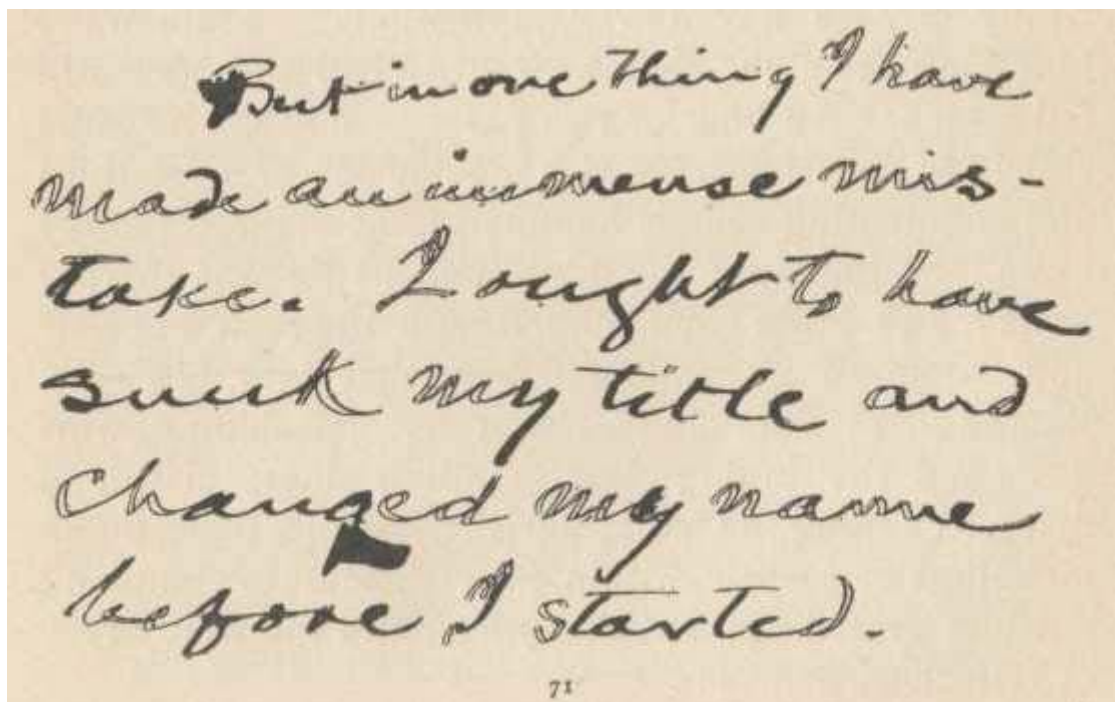 But in one thing I have
made an immense mis-
take. I ought to have
sunk my title and
changed my name
before I started.
71